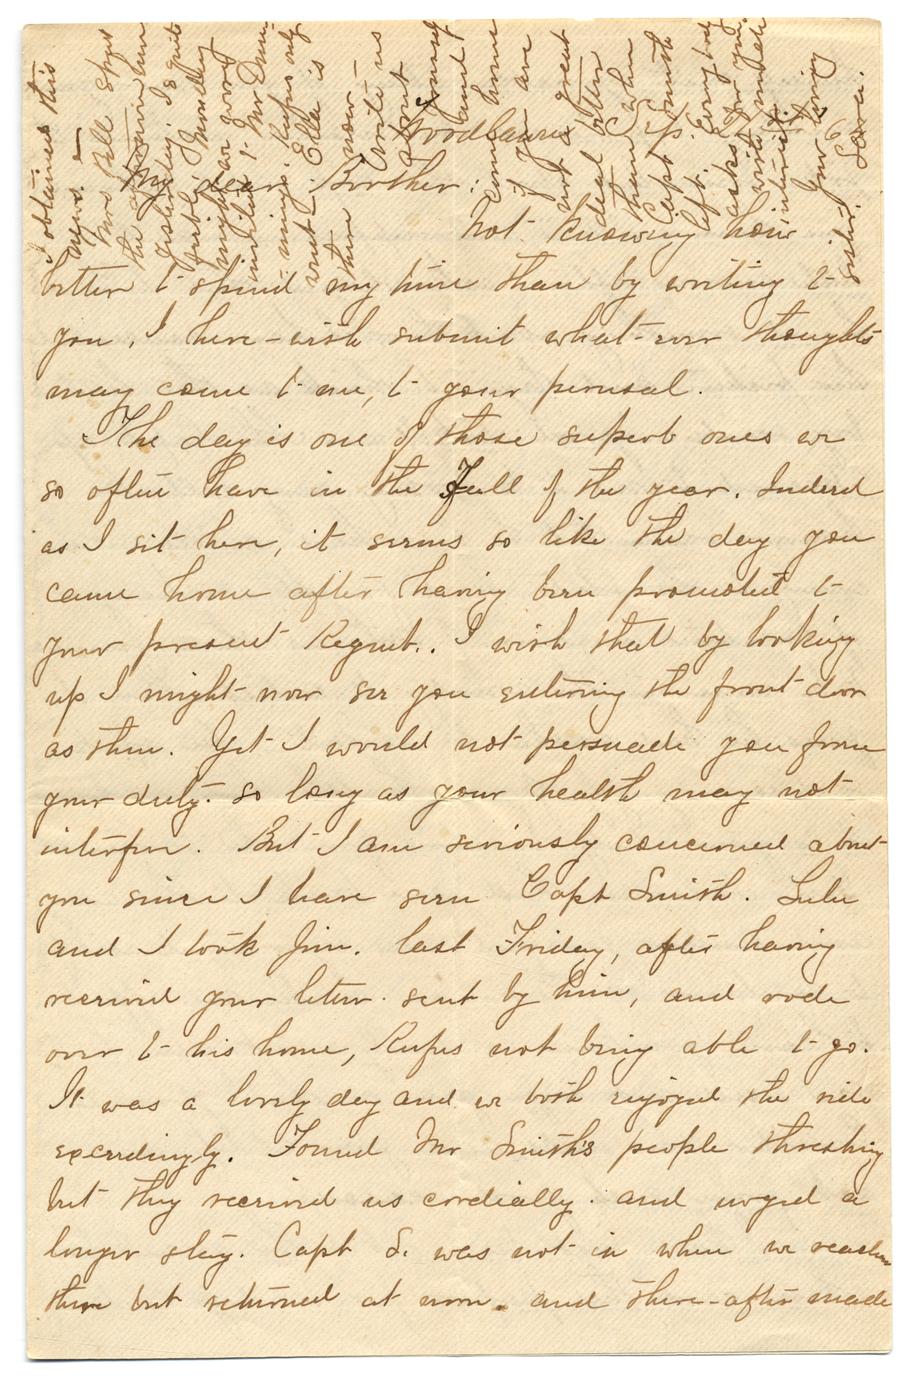 Woodlawn
My dear Borther:
Not knowing how
better t- spend my time than by writing t-
you, I here-wish submit what-ever thoughts
may come t- me, t- your perusal.
The day is one of those superb ones we
so often have in the Fall of the year. Indeed
as I sit here, it seems so like the day you
came home after having been promoted t-
your present Regmt.. I wish that by looking
up I might now see you entering the front door
as then. Yet I would not persuade you from
your duty. so long as your health may not
interfere. But I am seriously concerned about
you since I have seen Capt Smith. Lulu
and I took Jim. last Friday, after having
received your letter. sent by him, and rode
over t- his home, Rufus not being able t- go.
It was a lovely day and we both enjoyed the ride
exceedingly. Found Mr Smith's people threshing
but they received us cordially. and urged a
longer stay. Capt S. was not in when we reached
there but returned at noon. and there-after made
I obtained this
news. —
Mrs Hall stops
the
yesterday. Is quite
feeble, Mondley
might as worry
invited t- Mr
nings. Rufus only
went. Ella is
there now
Write us
about yourself
and
come home
if you are
not great
deal better
than when
Capt Smith
left. Every body
asks for you
write immediately
interested
Your loving
sister. Sarah.